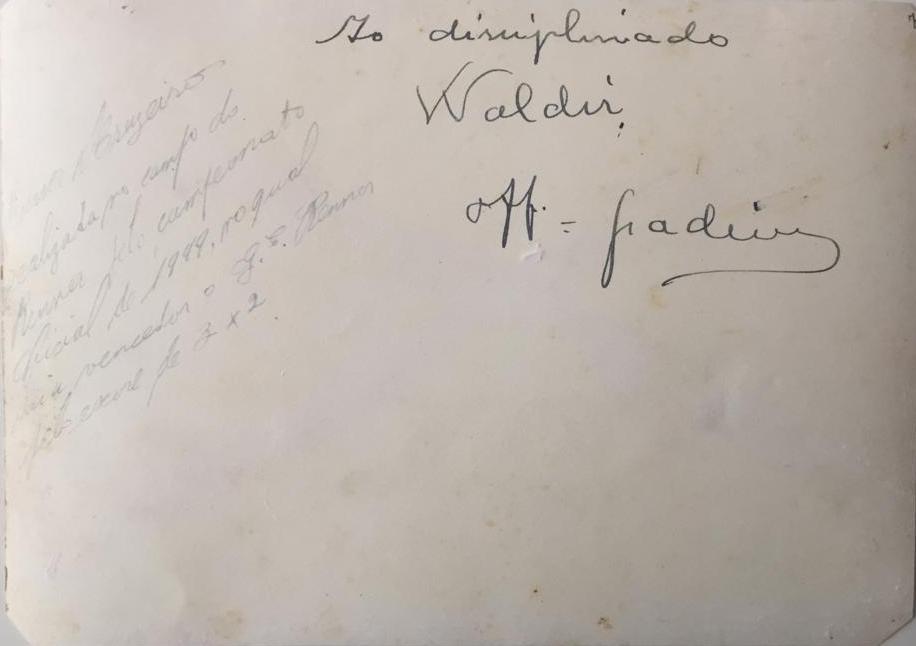 Ao disciplinado
Waldir,
Off. = Gradim
Cruzeiro
realizada no campo do
Renner pelo campeonato
oficial de 1949, no qual
vencedor o G. E. Renner
pelo escore de 3 x 2.